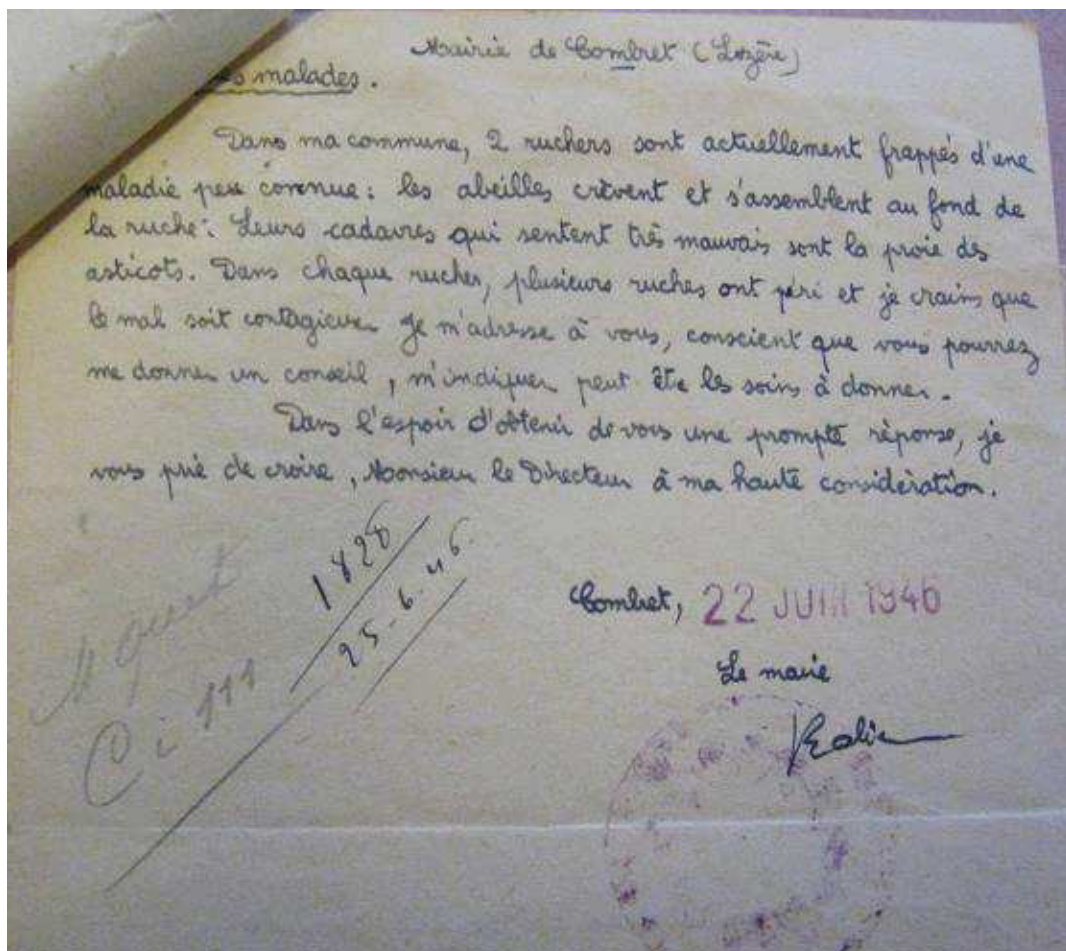 Mairie de Combret (Lozère)
malades.
Dans ma commune, 2 ruchers sont actuellement frappés d'une
maladie peu connue : les abeilles crèvent et s'assemblent au fond de
la ruche. Leurs cadavres qui sentent très mauvais sont la proie des
asticots. Dans chaque rucher, plusieurs ruches ont péri et je crains que
le mal soit contagieux. Je m'adresse à vous, conscient que vous pourrez
me donner un conseil, m'indiquer peut être les soins à donner.
Dans l'espoir d'obtenir de vous une prompte réponse, je
vous prie de croire, Monsieur le Directeur à ma haute considération.
1828
25-6-46.
Combret, 22 JUIN 1946
Le maire